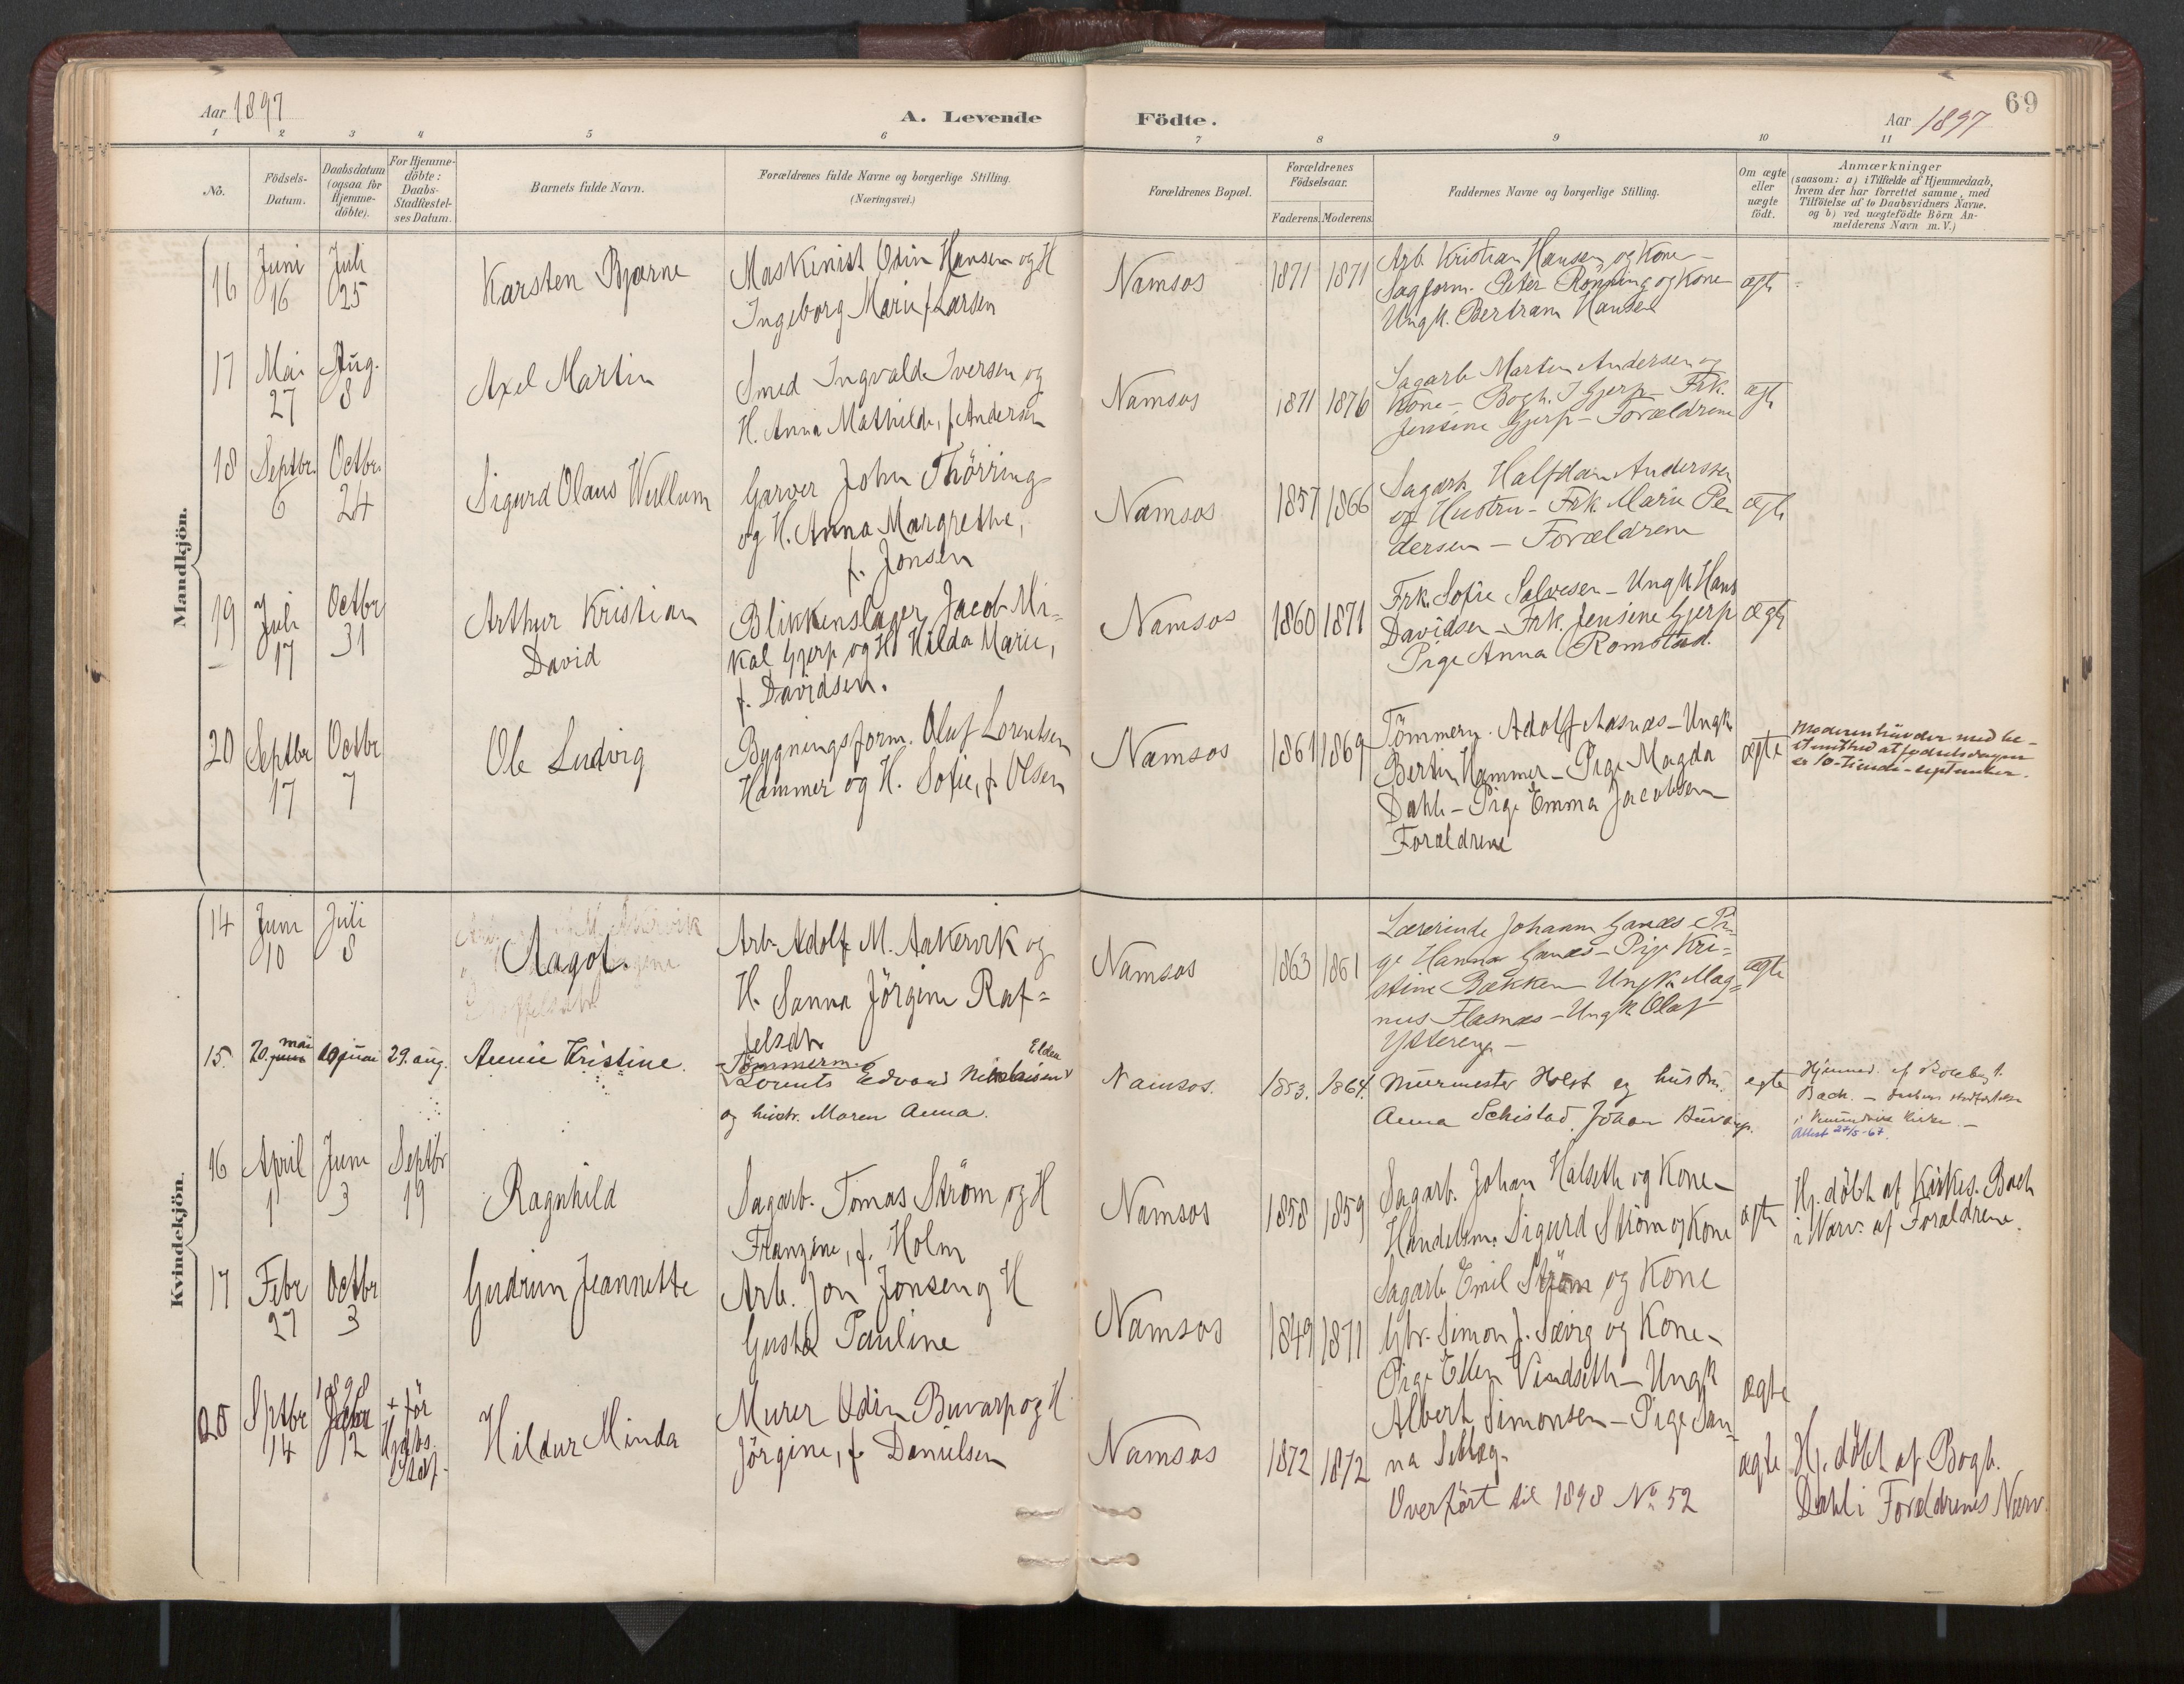 Aar 1897
A. Levende Födte.
Aar 1897
69
1 2 3 4 5 6 7 8 9 10 11
No.
Födsels-
Datum.
Daabsdatum
(ogsaa for
Hjemme-
döbte).
For Hjemme-
döbte:
Daabs-
Stadfæstel-
ses Datum.
Barnets fulde Navn.
Forældrenes fulde Navne og borgerlige Stilling.
(Næringsvei.)
Forældrenes Bopæl.
Forældrenes
Födselsaar.
Faderens. Moderens.
Faddernes Navne og borgerlige Stilling.
Om ægte
eller
uægte
födt.
Anmærkninger
(saasom: a) i Tilfælde af Hjemmedaab,
hvem der har forrettet samme, med
Tilföielse af to Daabsvidners Navne.
og b) ved uægtefödte Börn An-
melderens Navn m. V.)
Mandkjön.
16
Juni
16
Juli
25
Karsten Bjarne
Maskinist Odin Hansen og H
Ingeborg Marie f. Larsen
Namsos
1871
1871
Arb. Kristian Hansen og Kone -
Sagform. Peter Rönning og Kone
Ungk. Bertram Hansen
ægte
17
Mai
27
Aug.
8
Axel Martin
Smed Ingvald Iversen og
H. Anna Mathilde, f. Andersen
Namsos
1871
1876
Sagarb Martin Andersen og
Kone - Bogh. J Gjerp - Frk.
Jensine Gjerp - Forældrene
ægte
18
Septbr.
6
Octbr.
24
Sigurd Olaus Wullum
Garver John Thörring
og H. Anna Margrethe,
f. Jonsen
Namsos
1857
1866
Sagarb Halfdan Anderssen
og Hustru - Frk Marie Pe
dersen - Forældrene
ægte
19
Juli
17
Octbr
31
Arthur Kristian
David
Blikkenslager Jacob Mi-
kal Gjerp og H Hilda Marie,
f. Davidsen.
Namsos
1860
1871
Frk. Sofie Salvesen - Ungk. Hans
Davidsen - Frk. Jensine Gjerp
Pige Anna Romstad.
ægte
20
Septbr
17
Octbr
7
Ole Ludvig
Bygningsform. Oluf Lorentsen
Hammer og H. Sofie, f. Olsen
Namsos
1861
1869
Tömmerm. Adolf Aasnæs - Ungk
Bertin Hammer - Pige Magda
Dahl - Pige Emma Jacobsen
Forældrene
ægte
Moderen hævder med be-
stemthed at födselsdagen
er 10 - tiende - september.
Kvindekjön.
14
Juni
10
Juli
8
Aagot.
Arb Adolf M. Aakervik og
H. Sanna Jörgine Raf=
felseth
Namsos
1863
1861
Lærerinde Johanne Ganæs Pi-
ge Hanna Ganæs - Pige Kri-
stine Bakken Ungk. Mag=
nus Flasnæs - Ungk Olaf
Ysteren -
ægte
15.
20. mai
29. aug.
Annie Kristine.
Tömmerm.
Lorents Edvard Nikolaisen Elden
og hustr. Maren Anna.
Namsos.
1853.
1864.
Murmester Holst og hustru.
Anna Schistad. Johan Buvarp.
egte
Attest 27/5-67.
16
April
1
Juni
3
Septbr
19
Ragnhild
Sagarb. Tomas Ström og H
Franzine, f. Holm
Namsos
1858
1859
Sagarb. Johan Halseth og Kone -
Handelsm. Sigurd Ström og Kone
Sagarb Emil Ström og Kone
ægte
Hj. döbt af Kirkes. Bach
i Nærv. af Forældrene.
17
Febr
27
Octbr
3
Gudrun Jeannette
Arb. Jon Jonsen og H
Gusta Pauline
Namsos
1849
1871
Gbr. Simon J. Sævig og Kone -
Pige Ellen Vindseth - Ungk
Albert Simonsen - Pige San
na Selläg.
ægte
20
Sptbr
14
1898
12
+ för
Hjdbs.
Staf.
Hildur Minda
Murer Odin Buvarp og H
Jörgine, f. Danielsen
Namsos
1872
1872
Overfört til 1898 No 52
ægte
Hj. döbt af Bogh.
Dahl i Forældrenes Nærv.